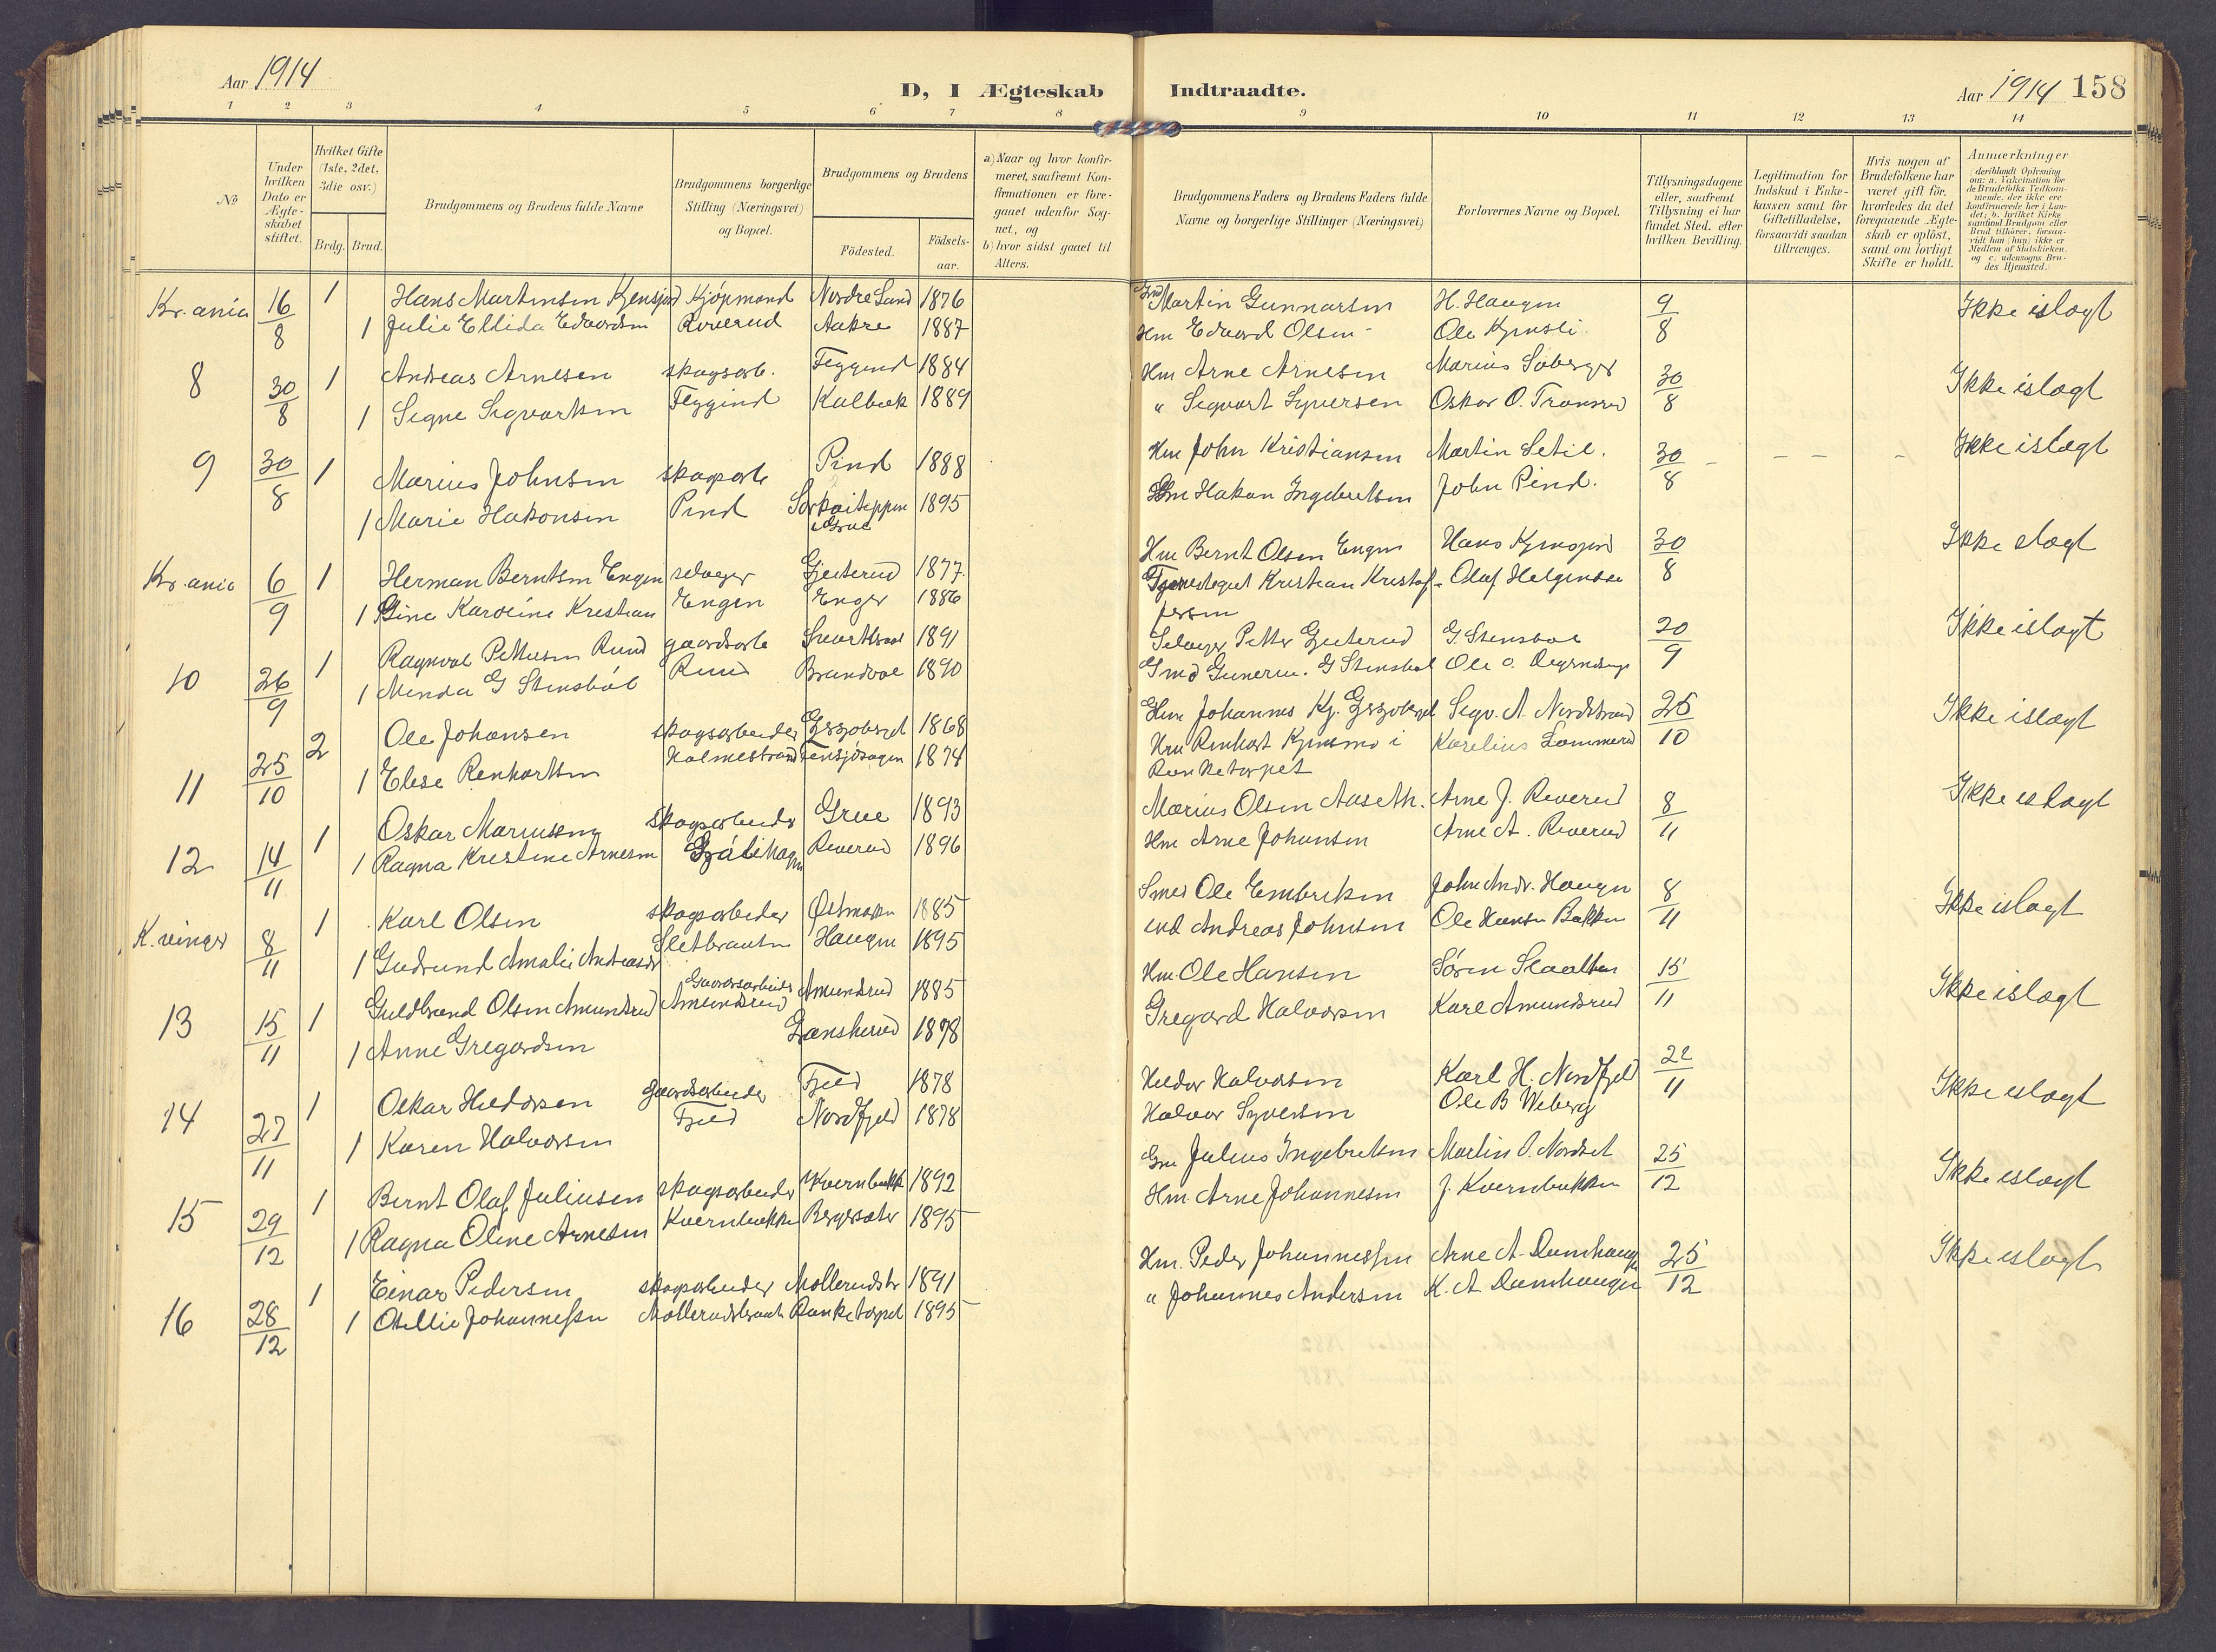 Aar 1914
D, I Ægteskab Indtraadte.
Aar 1914 158
1 2 3 4 5 6 7 8 9 10 11 12 13 14
No
Under hvilken Dato er Ægteskabet stiftet.
Hvilket Gifte (1ste, 2det, 3die osv.)
Brdg. Brud.
Brudgommens og Brudens fulde Navne
Brudgommens borgerlige Stilling (Næringsvei) og Bopæl.
Brudgommens og Brudens
Födested. Födsels-aar.
a) Naar og hvor konfirmeret, saafremt Konfirmationen er foregaaet udenfor Sognet, og
b) hvor sidst gaaet til Alters.
Brudgommens Faders og Brudens Faders fulde Navne og borgerlige Stillinger (Næringsvei)
Forlovernes Navne og Bopæl.
Tillysningsdagene eller, saafremt Tillysning ei har fundet Sted, efter hvilken Bevilling.
Legitimation for Indskud i Enkekassen samt for Giftetilladelse, forsaavidt saadan tiltrænges.
Hvis nogen af Brudefolkene har været gift för, hvorledes da det foregaaende Ægteskab er oplöst, samt om lovligt Skifte er holdt.
Anmærkninger (deriblandt Oplysning om: a. Vakcination for de Brudefolks Vedkommende, der ikke ere konfirmerede her i Landet; b. hvilket Kirkesamfund Brudgom eller Brud tilhörer, forsaavidt han (hun) ikke er Medlem af Statskirken, og c. udensogns Brudes Hjemsted.)
Kr.ania 16/8 1 Hans Martinsen Kjensjord Kjöpmand Nordre Sand 1876 Martin Gunnarsen H. Haugen 9/8 Ikke islagt
1 Julie Ellida Edvardsen Riverud Aakre 1887 Hm Edvard Olsen Ole Kjensli
8 30/8 1 Andreas Arnesen skogsarb. Flyggind 1884 Hm Arne Arnesen Marius Soberger 30/8 Ikke islagt
1 Signe Sigvartsen Flyggind Kalbæk 1889 " Sigvart Syversen Oskar O. Transrud
9 30/8 1 Marius Johnsen skogsarb Pind 1888 Hm John Kristiansen Martin Setil. 30/8 - - - - Ikke islagt
1 Marie Hakonsen Pind i Grue 1895 Hakon Ingebretsen John Pind.
Kr.ania 6/9 1 Herman Berntsen Engen selveger Gjeiterud 1877 Hm Bernt Olsen Engen Hans Kjensjord 30/8 Ikke slagt
1 Gina Karoline Kristian Engen Enger 1886 Kristian Kristof- Olaf Helgendse
fersen
10 26/9 1 Ragnval Pettersen Rund gaardsarb 1891 Selveger Petter Gjeterud G. Stensbøl 20/9 Ikke islagt
1 Minda G Stensböl Rund Brandval 1890 G Stensbøl Ole O.
11 25/10 2 Ole Johansen skogsarbeider 1868 Hm Johannes Kj. Sigv. A. Nordstrand 25/10 Ikke islagt
1 Elise Renhartsen Holmestrand 1874 Hm Renhart i Karelius Lommerud
Ranketorpet
12 14/11 1 Oskar Mariussen skogsarbeider Grue 1893 Marius Olsen Aaseth. Arne J. Riverud 8/11 Ikke islagt
1 Ragna Kristine Arnesen Riverud 1896 Hm Arne Johansen Arne A. Riverud
K.vinger 8/11 1 Karl Olsen skogsarbeider Østmarka 1885 Smed Ole Embretsen John Andr. Haugen 8/11 Ikke islagt
1 Gudrund Amalie Andreasdr Sletbraaten Haugen 1895 Andreas Johnsen Ole Hansen Bakken
13 15/11 1 Guldbrand Olsen Amundsrud Gaardsarbeider Amundsrud Amundsrud 1885 Hm Ole Hansen Søren Slaatten 15/11 Ikke islagt
1 Anne Gregardsen 1878 Gregard Halvorsen Karl Amundsrud
14 27/11 1 Oskar Hildorsen gaardsarbeider Fjeld 1878 Heldor Halvorsen Karl H. Nordfjeld 22/11 Ikke islagt
1 Karen Halvorsen Fjeld Nordfjeld 1878 Halvor Syversen Ole B Weberg
15 29/12 1 Bernt Olaf Juliusen skogsarbeider Kvernbækk 1892 Gm Julius Ingebretsen Martin O. Nordset 25/12 Ikke islagt
1 Ragna Oline Arnesen Kvernbækken Bergesæter 1895 Hm Arne Johannesen J. Kvernbækken
16 28/12 1 Einar Pedersen skogsarbeider Mollerudstr 1891 Hm. Peder Johannessen Arne A. Damhaugen 25/12 Ikke islagt
1 Otellie Johannessen Mollerudsbraat Ranketorpet 1895 " Johannes Andersen K. A Damhaugen